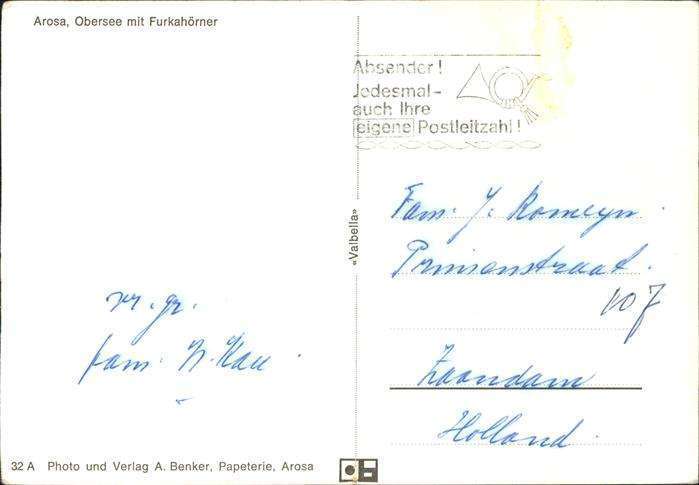 Arosa, Obersee mit Furkahörner
Absender!
Jedesmal-
auch Ihre
eigene Postleitzahl!
«Valbella»
Fam. J. Romeyn.
Prinsenstraat.
107
Zaandam
Holland.
vr. gr.
fam. N. Kau.
32 A Photo und Verlag A. Benker, Papeterie, Arosa